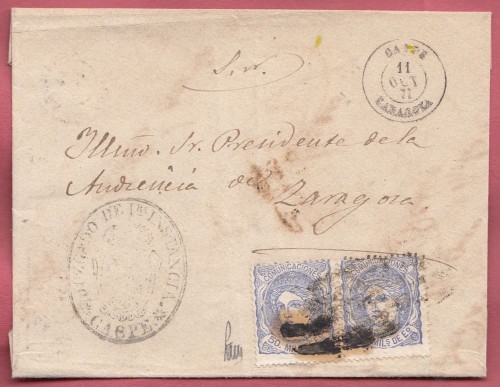 CASPE
11
OCT
71
ZARAGOZA
Illmo. Sr. Presidente de la
Audiencia de
Zaragoza.
JUZGADO DE 1ra INSTANCIA
CASPE
COMUNICACIONES COMUNICACIONES
50 MILS DE ES